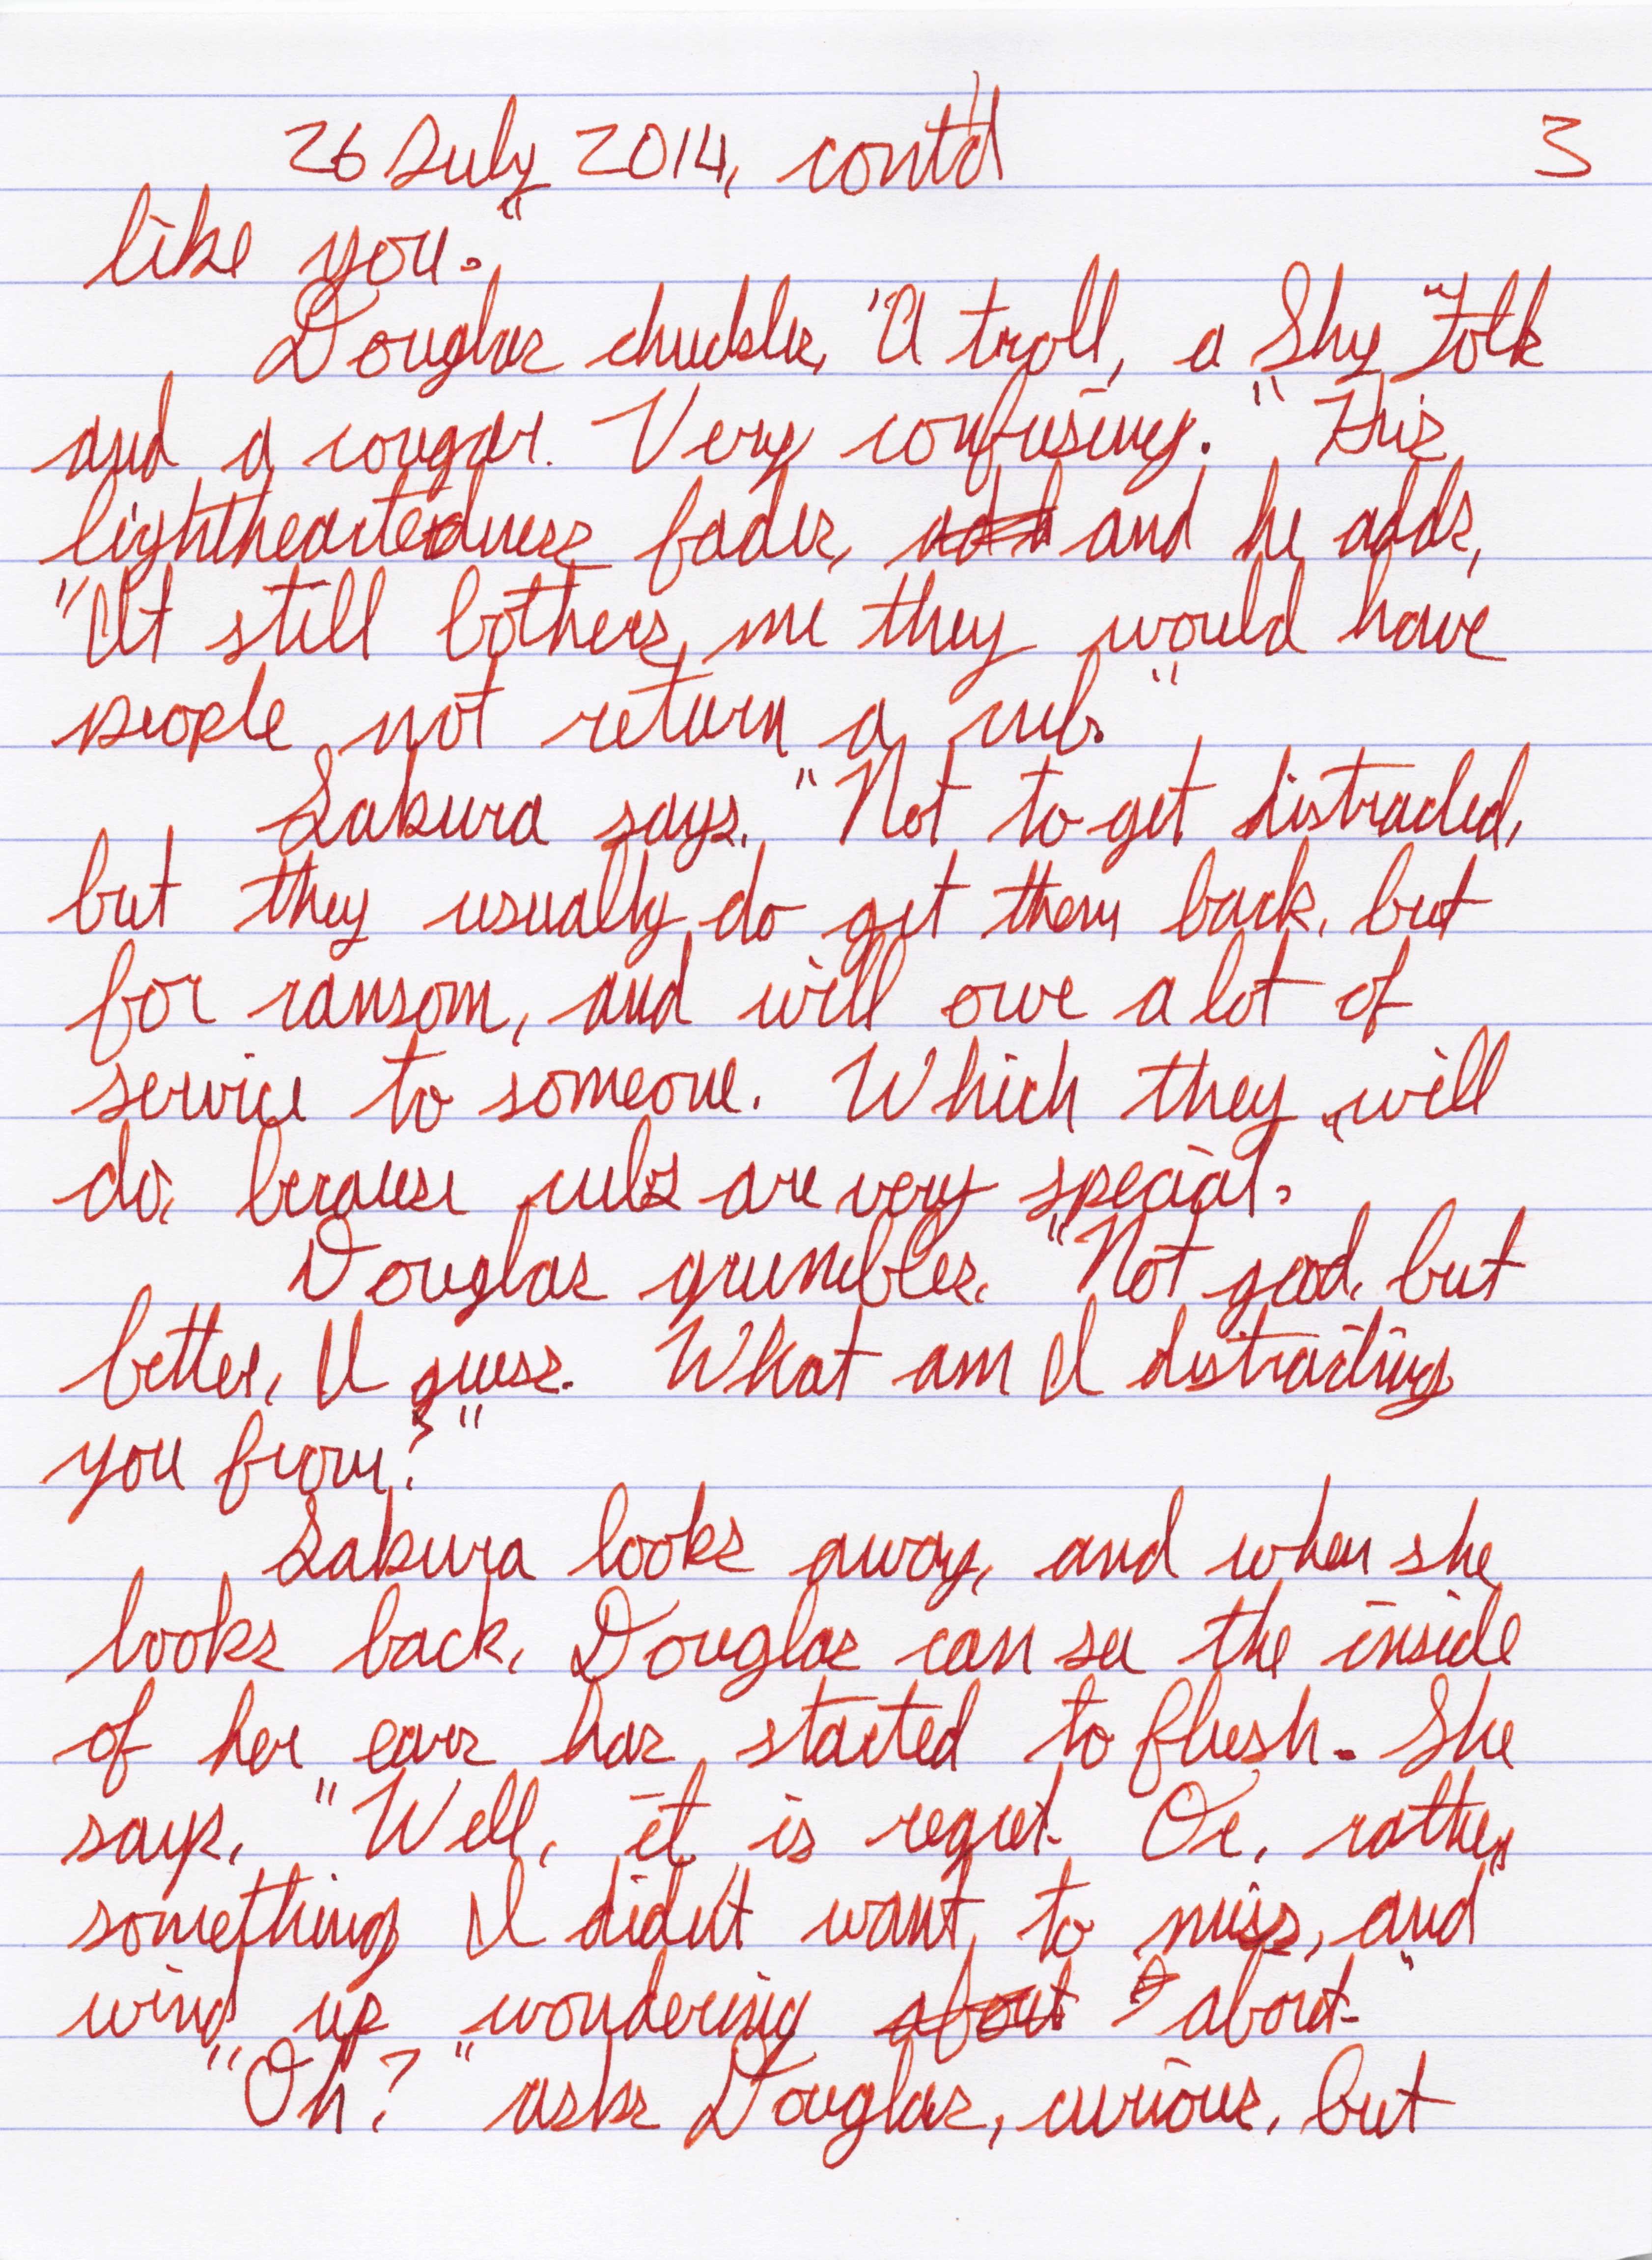 26 July 2014, cont'd 3
like you."
Douglas chuckles, "A troll, a Shy Folk
and a cougar. Very confusing." His
lightheartedness fades, and he adds,
"It still bothers me they would have
people not return a cub."
Sakura says, "Not to get distracted,
but they usually do get them back, but
for ransom, and will owe a lot of
service to someone. Which they will
do, because cubs are very special."
Douglas grumbles, "Not good, but
better, I guess. What am I distracting
you from?"
Sakura looks away, and when she
looks back, Douglas can see the inside
of her ears has started to flush. She
says, "Well, it is regret. Or, rather,
something I didn't want to miss, and
wind up wondering about about."
"Oh?" asks Douglas, curious, but